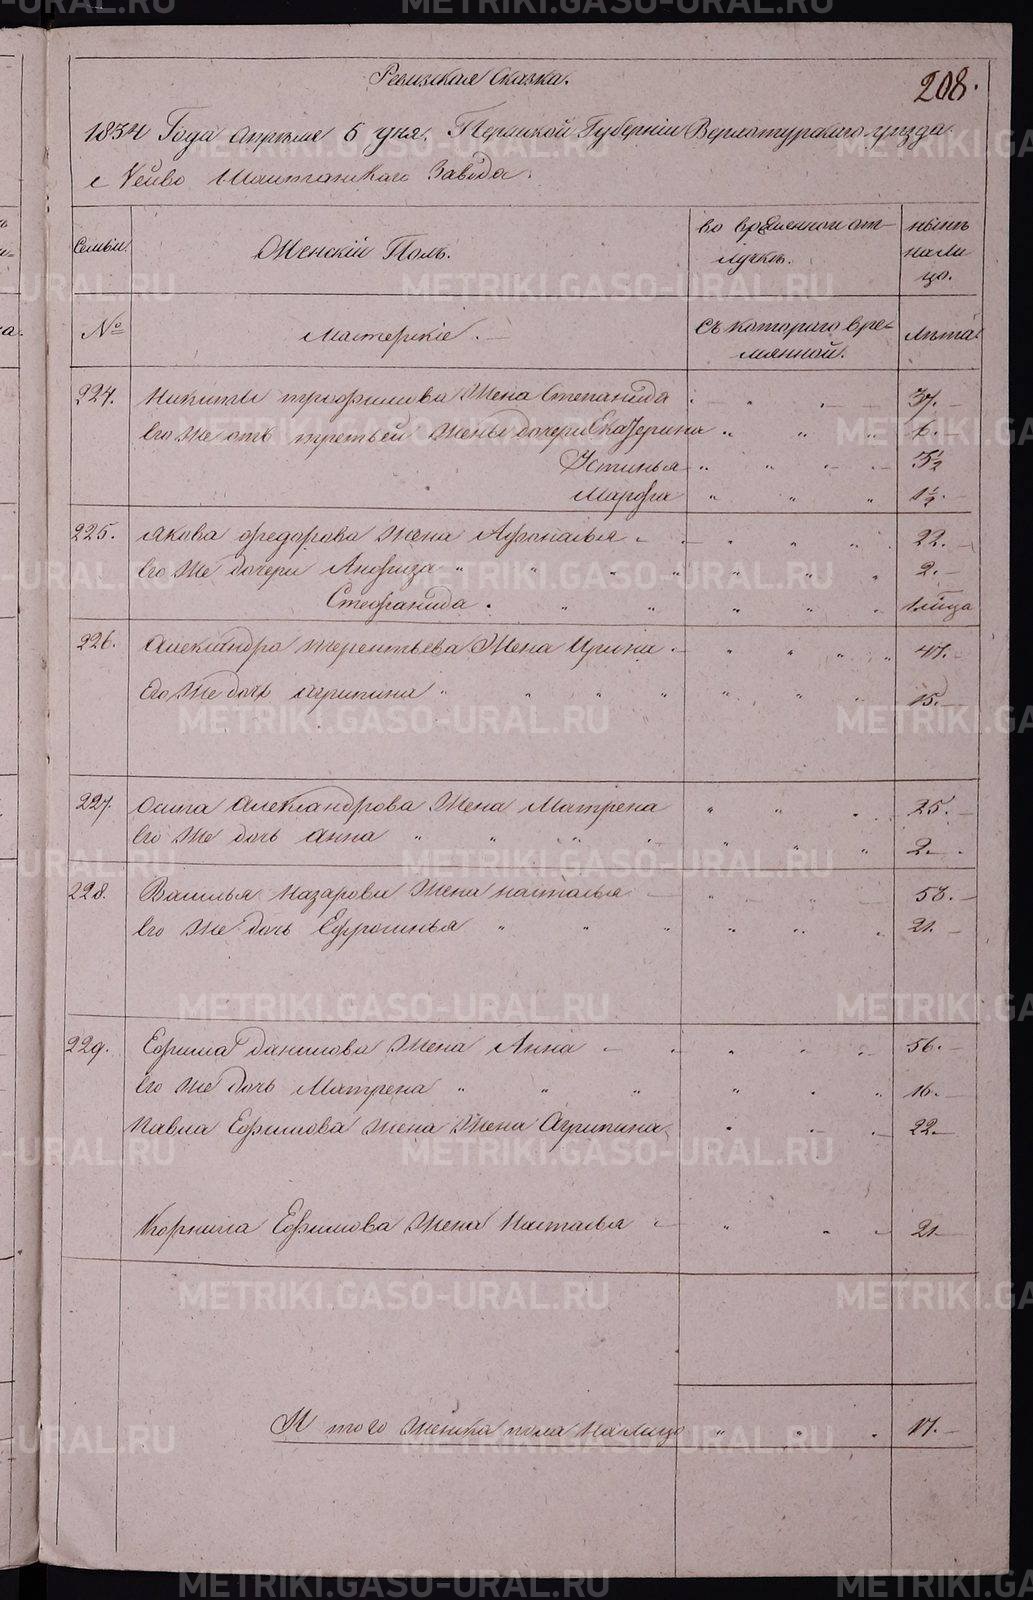 Ревизская Сказка.
208.
1834 Года апреля 5 дня. Пермской Губернии Верхотурского уезда
Нейво Шайтанского Завода.
Семьи
Женскiй Полъ.
во временной от-
лучкѣ.
нынѣ
на ли
цо.
№
Мастерскiе.
Съ котораго вре-
мянной.
Лѣта
224. Никиты трофимова Жена Степанида " " 37.
Его же отъ третьей жены дочери Екатерина " " " 6.
Устинья " " 3½
Марфа " " " 1½.
225. Якова федорова жена Афонасья " " " 22.
Его же дочери Анфиза " " " " " " " 2.
Стефанида " " " " " 1 мѣсяца
226. Александра терентьева Жена Ирина " " " " 47.
Его же дочь агрипина " " " " " " 15.
227. Осипа александрова Жена Матрена " " " 25.
Его же дочь анна " " " " " " " 2.
228. Василья назарова Жена наталья " " 53.
Его же дочь Ефросинья " " " " " " 21.
229. Ефима данилова Жена Анна " " 56.
Его же дочь Матрена " " " " " " 16.
Павла Ефимова жена Жена Агрипина " 22.
Корнила Ефимова Жена Наталья " " 21.
И того женска пола на лицо " " " 17.
METRIKI.GASO-URAL.RU